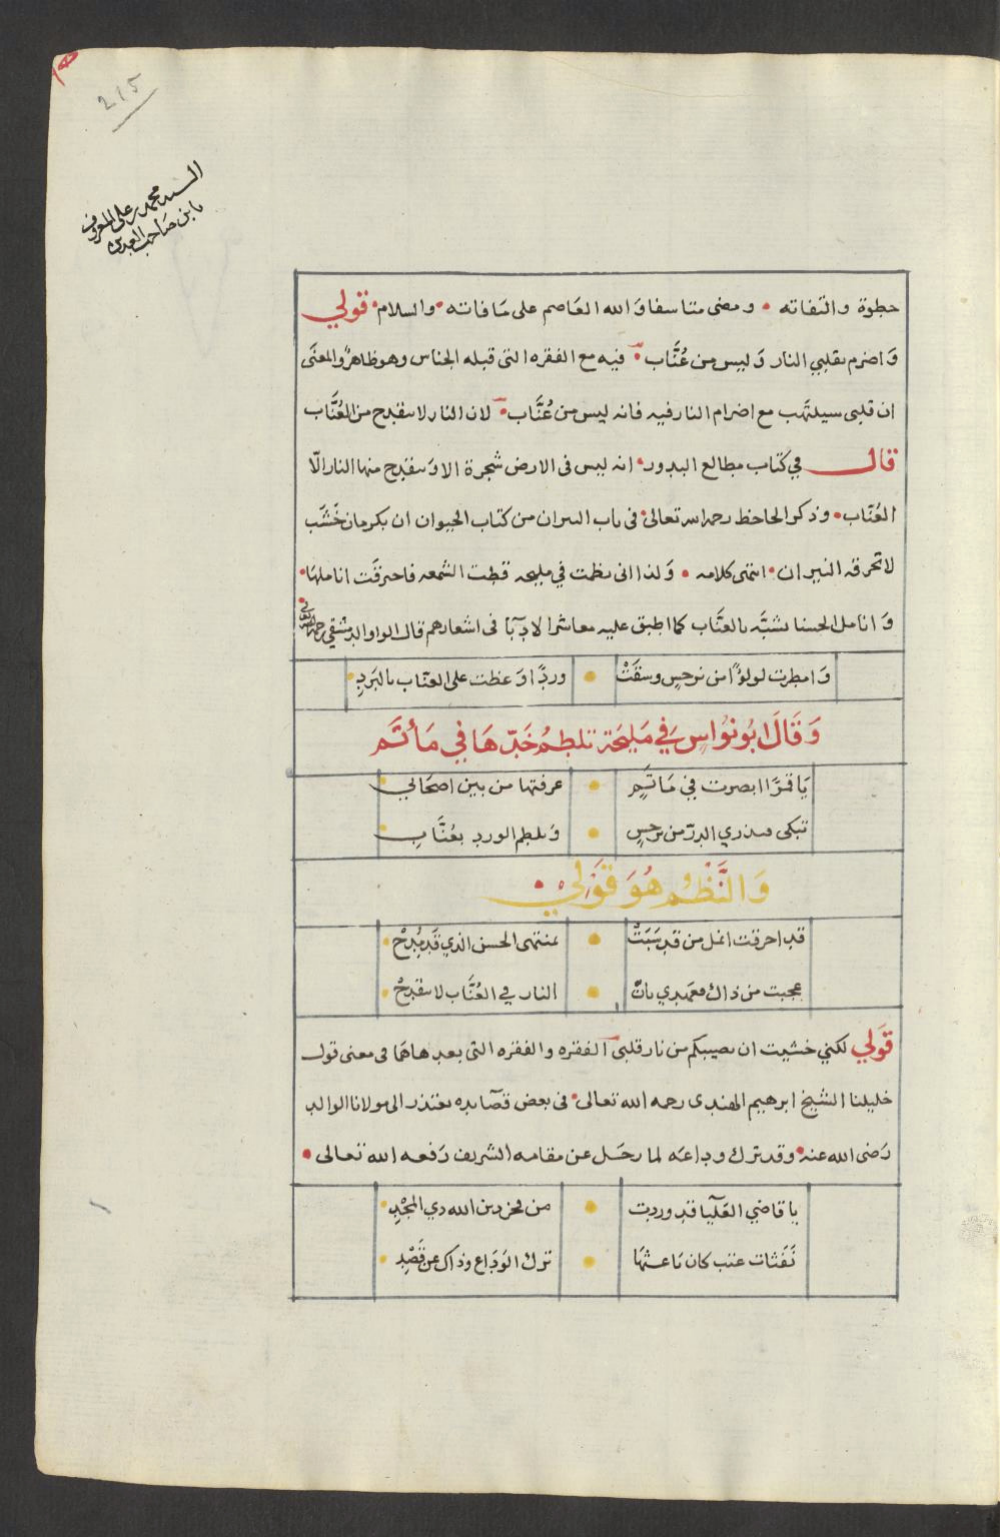 215
السيد محمد بن علي المعروف
بابن صاحب
حظوة والتفاته • ومضى متاسفا وَالله العَاصم على مَا فاته • والسلام • قولي
وَاضرم بقلبي النار وَليس من عُنَّاب • فيه مع الفقره التى قبله الجناس وهو ظاهرٌ والمعنَى
ان قلبى سيلتهب مع اضرام النار فيه فانه ليس من عُنَّاب • لان النار لا تنقدح من العُنَّاب
قال في كتاب مطالع البدور • انه ليس فى الارض شجرة الا وَتنقدح منها النار الّا
العُنّاب • وذكر الجاحظ رحمه الله تعالى • فى باب النيران من كتاب الحيوان ان بكرمان خَشَب
لا تحرقه النيران • انتهى كلامه • وَلذا انى نظمت في مليحه قطت الشمعه فاحترقَت اناملهَا •
وَانامل الحسنا تشبَّه بالعنَّاب كما اطبق عليه معاشر الادبَا فى اشعارهم قال الواوا الدمشقي رحمه الله تعالى
وَامطرت لولوًا من نرجسٍ وسقَتْ • وردًا وَعضت على العنّاب بالبَردِ •
وَقَالَ ابُو نوَاسٍ فِي مَليحَة تلطِمُ خَدّهَا فِي مَأتَم
يَا قمرًا ابصرت فِي مَاتَمٍ • عرفتها من بين اصحَابي
تبكى فتذري الدرّ من نرجسٍ • وَتلطم الورد بعُنَّابِ
وَالنَّظْمُ هُوَ قَوَلي •
قد احرقت انمل من قد سَبَتْ • بمنتهى الحسن الذي قَد مُدِحْ •
عجبت من ذاك فعهدي بانّ • النار في العُنَّاب لا تنقدِحْ •
قَولي لكنني خشيت ان تصيبكم من نار قلبى الفقره والفقره التى بعدها هما فى معنى قول
خليلنا الشيخ ابرهيم الهندى رحمه الله تعالى • فى بعض قصَايده يعتذر الى مولانا الوالد
رَضى الله عنه • وقد ترك وداعَه لما رحَل عن مقامه الشريف رَفعه الله تعالى •
يا قاضي العَليَا قد وردت • من فخر دين الله ذي المجْدِ •
نَفَثات عتب كان بَاعثهَا • ترك الوَدَاع وذاك عن قَصْدِ •